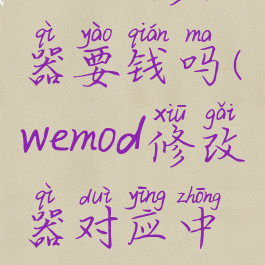 qì yào qián ma
器要钱吗(
xiū gǎi
wemod修改
qì duì yīng zhōng
器对应中